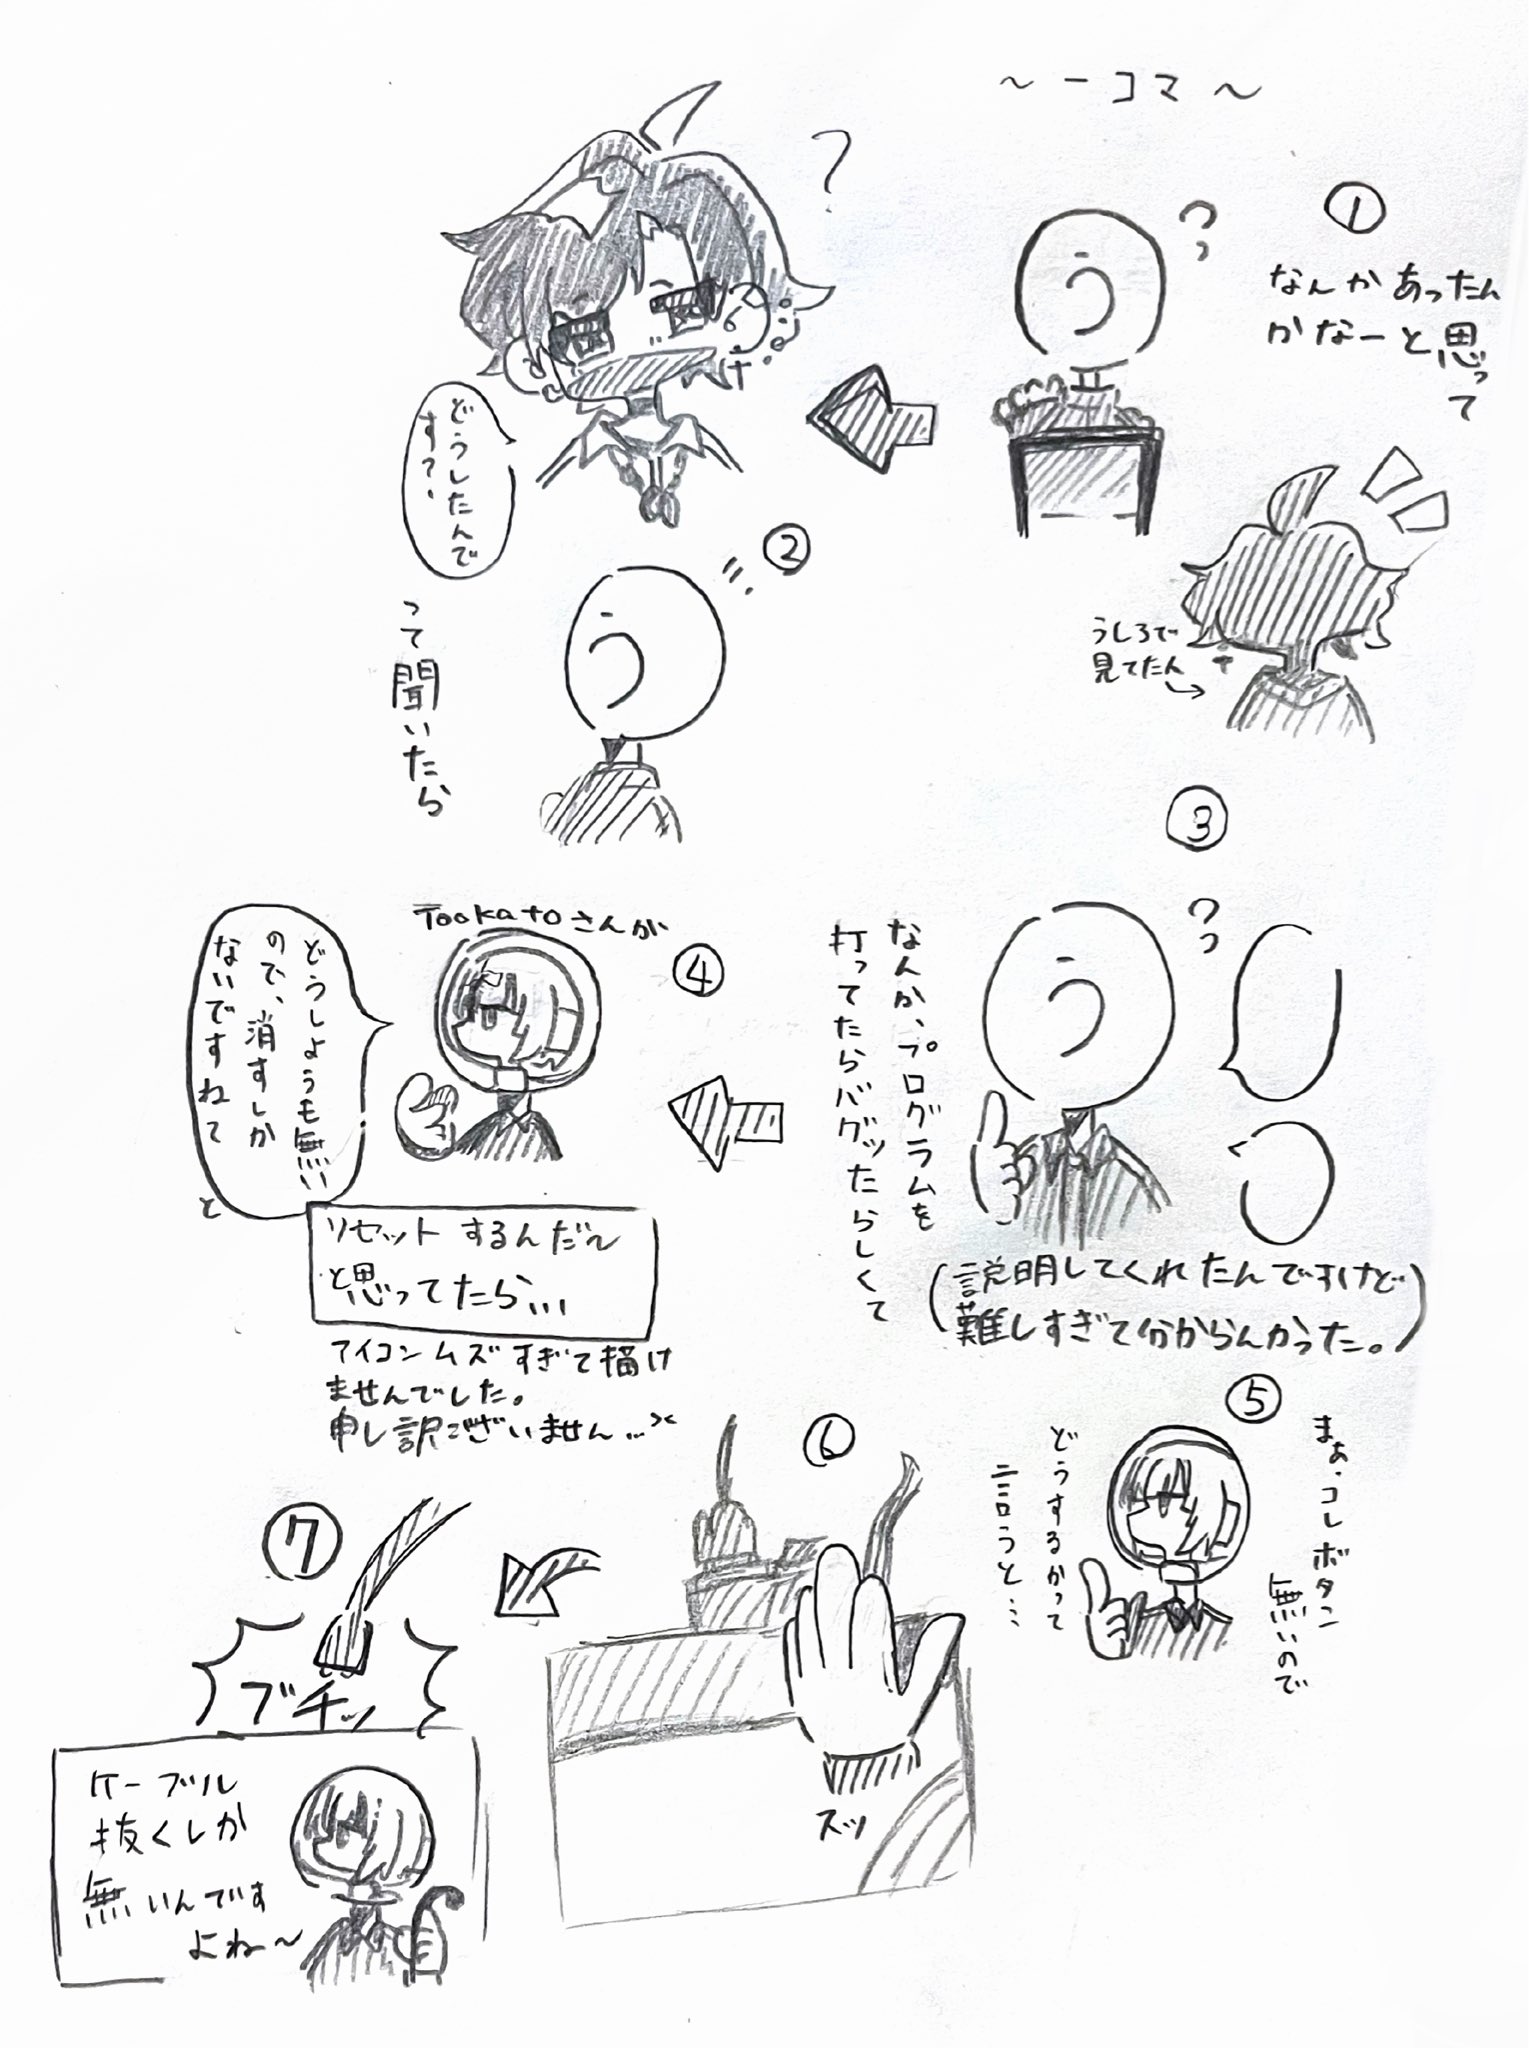 ~一コマ~
①
なんかあったん
かなーと思って
うしろで
見てたん
?
どうしたんで
す?
②
って聞いたら
③
(説明してくれたんですけど
難しすぎて分からんかった。)
なんか、プログラムを
打ってたらバグったらしくて
④
Tookatoさんが
どうしようも無い
ので、消すしか
ないですねて
と
リセットするんだ~
と思ってたら...
アイコンムズすぎて描け
ませんでした。
申し訳ございません...><
⑤
まぁ、コレボタン
無いので
どうするかって
言うと…
⑥
スッ
⑦
ブチッ
ケーブル
抜くしか
無いんです
よね~